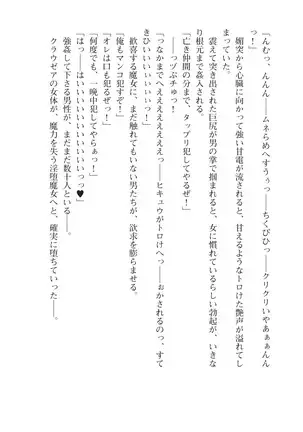 「んむっ、んんん――ムネらめへすうぅっ――ちくびひっ――クリクリいやあぁぁんん
っ！」
媚突から心臓に向かって強い甘電が流されると、甘えるようなトロけた艶声が溢れてし
まう。
震えて突き出された巨尻が男の掌に掴まれると、女に慣れているらしい勃起が、いきな
り根元まで挿入された。
――っヅぷチゅっ！
「亡き仲間の分まで、タップリ犯してやるぜ！」
「っなかまでへえぇぇぇぇぇっ――ヒキュウがトロけへっ――おかされるのっ、すて
きひいいいぃぃぃぃっっ！」
歓喜する魔女に、まだ触れてもいない男たちが、欲求を膨らませる。
「俺もマンコ犯すぞ！」
「オレは口も犯るぜ！」
「何度でも、一晩中犯してやらぁっ！」
「はっ――はいいいいいぃぃっっ♥」
強姦して下さる男性が、まだまだ数十人といる――。
クラウゼアの女体が、魔力を失う淫堕魔女へと、確実に堕ちていった――。